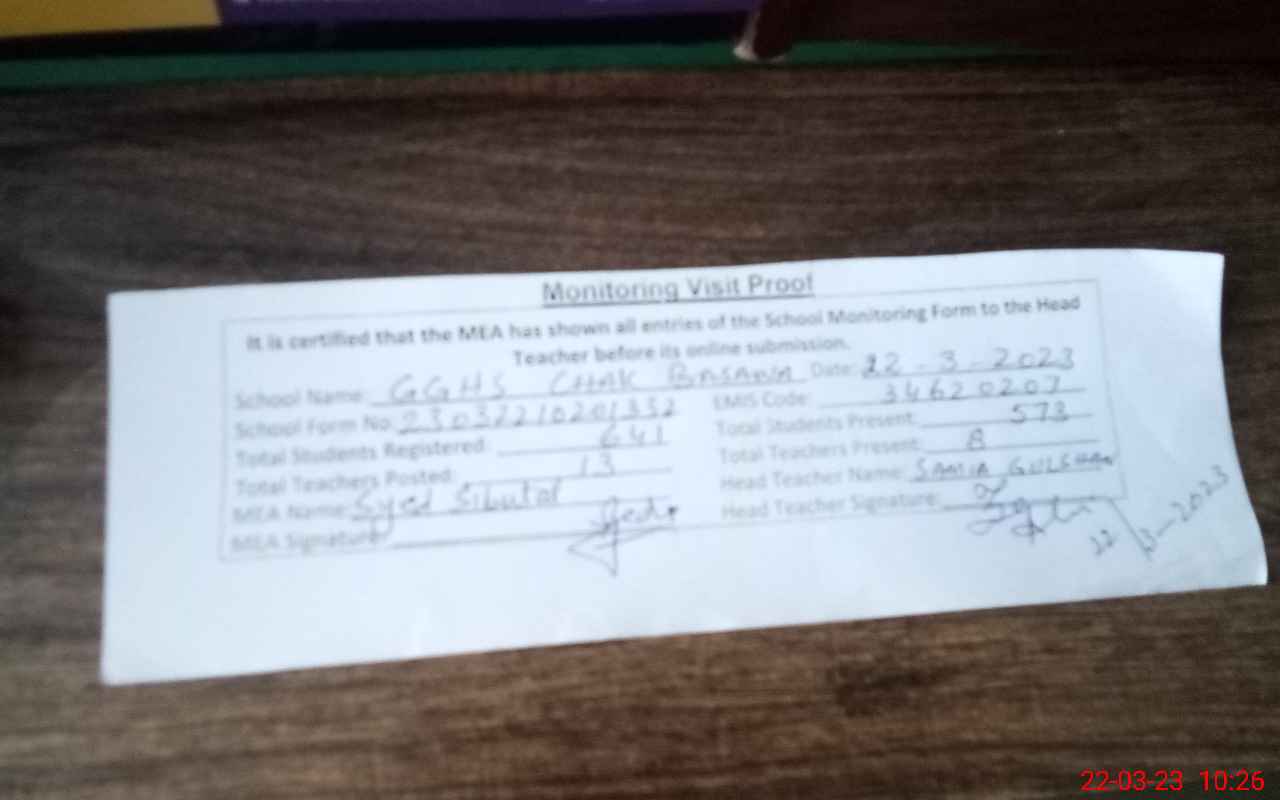 Monitoring Visit Proof
It is certified that the MEA has shown all entries of the School Monitoring Form to the Head
Teacher before its online submission.
School Name: GGHS CHAK BASAWA Date: 22-3-2023
School Form No: 23032210201332 EMIS Code: 34620207
Total Students Registered: 641 Total Students Present: 573
Total Teachers Posted: 13 Total Teachers Present: 8
MEA Name: Syed Sibutal Head Teacher Name: SAMIA GULSHAN
MEA Signature: Head Teacher Signature:
22/3-2023
22-03-23 10:26